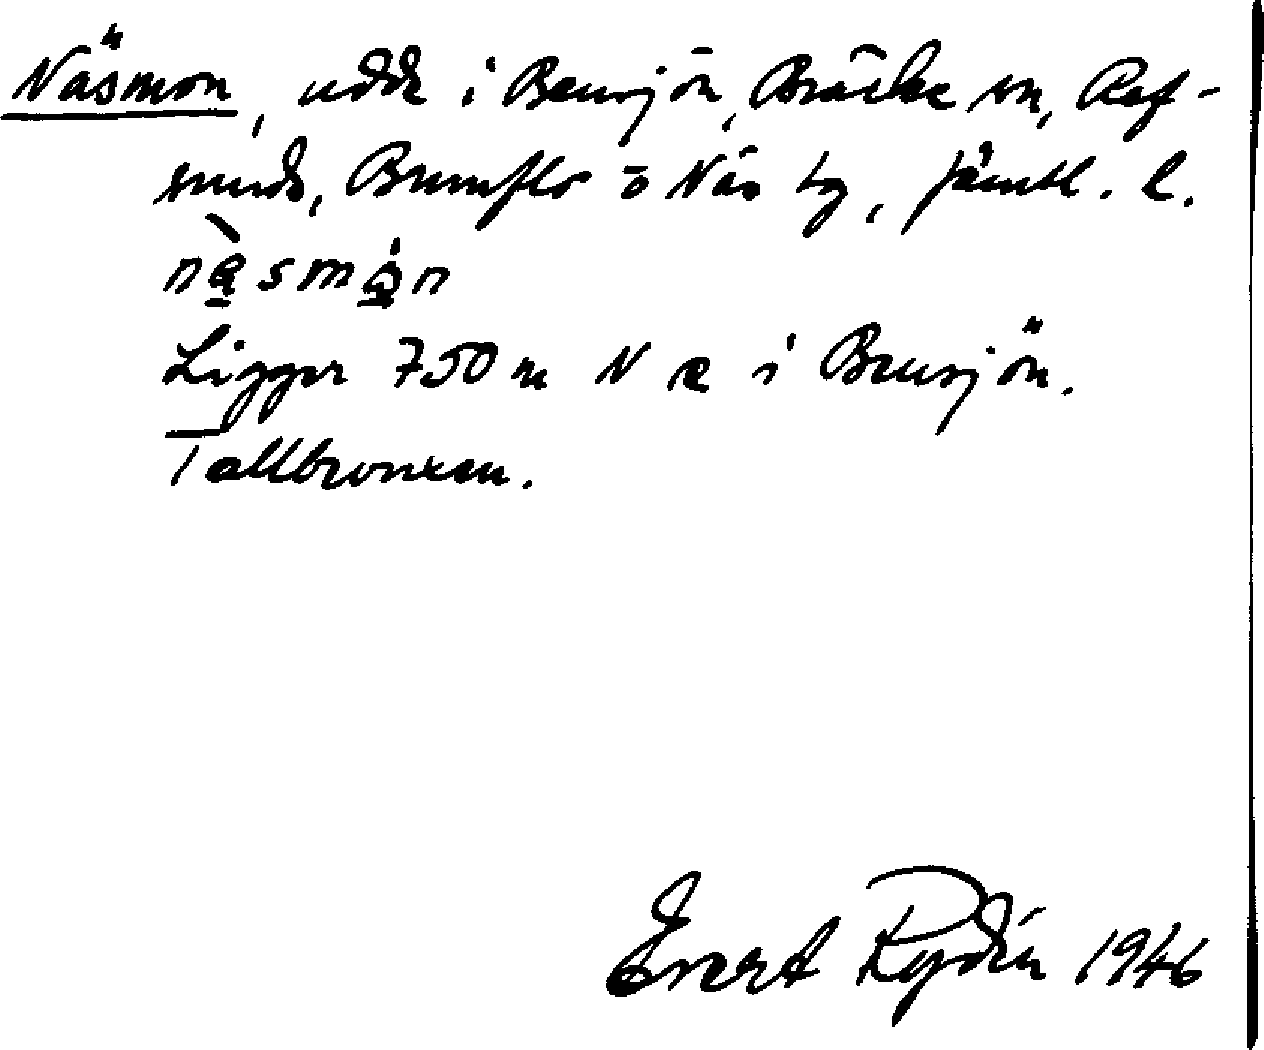 Näsmon, udde i Bensjön, Bräcke sn, Ref-
sunds, Brunflo o Näs tg, Jämtl. l.
nàsmån
Ligger 750 m N R i Bensjön.
Tallbronxen.
Evert Rydén 1946